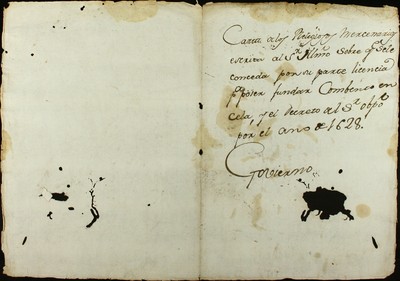 Carta de los Religiosos Mercenarios
escrita al Sr. Illmo sobre q se le
conceda por su parte licencia
pa poder fundar Combento en
Cela, y el decreto de el Sr. obpo
por el año de 1628.
Govierno